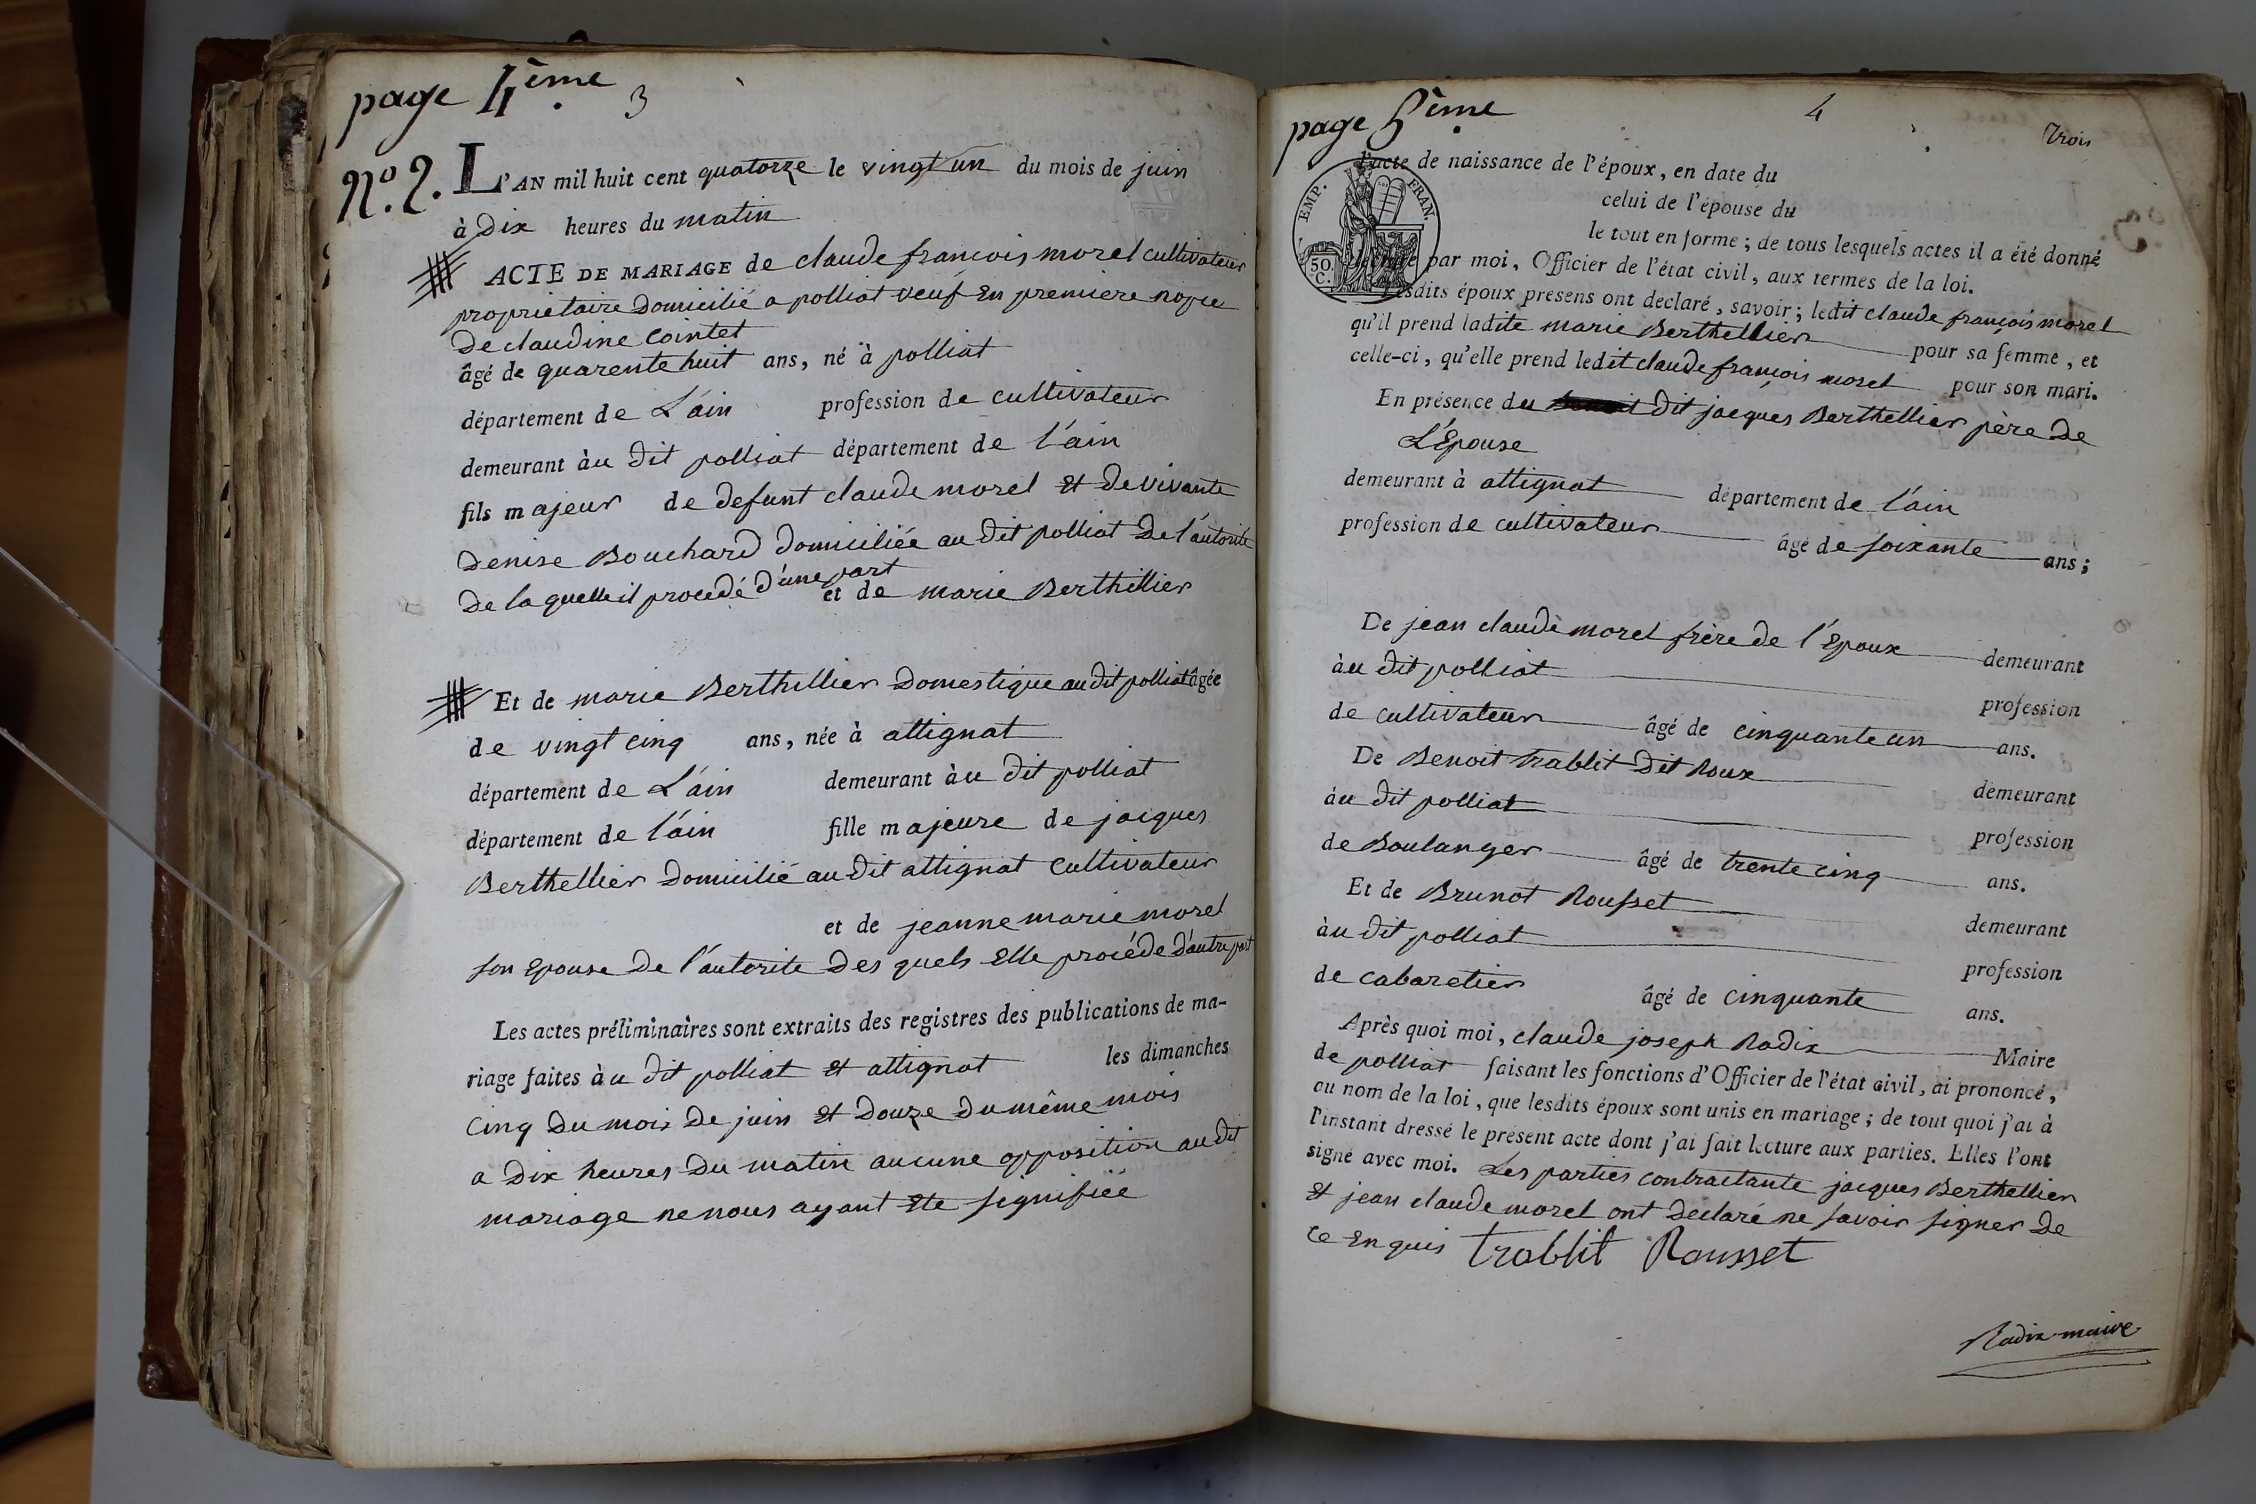 page 4ème
3
N.º 2. L'AN mil huit cent quatorze le vingt un du mois de juin
à Dix heures du matin
ACTE DE MARIAGE de claude françois morel cultivateur
propriétaire Domicilié a polliat veuf En premiere nopce
De claudine Cointet
âgé de quarente huit ans, né à polliat
département de L'áin profession de cultivateur
demeurant àu dit polliat département de l'ain
fils majeur de defunt claude morel Et De vivante
Denise Bouchard domiciliée au dit polliat De l'autorite
De la quelle il procedé d'une part
et de marie Berthillier
Et de marie Berthillier Domestique au dit polliat âgée
de vingt cinq ans, née à attignat
département de L'áin demeurant àu dit polliat
département de l'áin fille majeure de jacques
Berthellier Domicilié au dit attignat Cultivateur
et de jeanne marie morel
son Epouse De l'autorite Des quels Elle procéde D'autre part
Les actes préliminaires sont extraits des registres des publications de ma-
riage faites àu dit polliat Et attignat les dimanches
Cinq Du mois De juin Et Douze Du même mois
a Dix heures Du matin aucune opposition au dit
mariage ne nous ayant Ete signifiée
page 5ème
4
Trois
EMP. FRAN.
50. C.
l'acte de naissance de l'époux, en date du
celui de l'épouse du
le tout en forme; de tous lesquels actes il a été donné
par moi, Officier de l'état civil, aux termes de la loi.
Lesdits époux présens ont déclaré, savoir; ledit claude françois morel
qu'il prend ladite marie Berthellier pour sa femme, et
celle-ci, qu'elle prend ledit claude françois morel pour son mari.
En présence du dit jacques Berthellier père De
L'Epouse
demeurant à attignat département de l'ain
profession de cultivateur âgé de soixante ans;
De jean claude morel frère de l'Epoux demeurant
àu dit polliat profession
de cultivateur âgé de cinquante un ans.
De Benoit trablit Dit Roux demeurant
àu dit polliat profession
de Boulanger âgé de trente cinq ans.
Et de Brunot Rousset demeurant
àu dit polliat profession
de cabaretier âgé de cinquante ans.
Après quoi moi, claude joseph Radix Maire
de polliat faisant les fonctions d'Officier de l'état civil, ai prononcé,
au nom de la loi, que lesdits époux sont unis en mariage; de tout quoi j'ai à
l'instant dressé le présent acte dont j'ai fait lecture aux parties. Elles l'ont
signé avec moi. Les parties contractante jacques Berthellier
Et jean claude morel ont declaré ne savoir signer De
Ce Enquis trablit Rousset
Radix maire